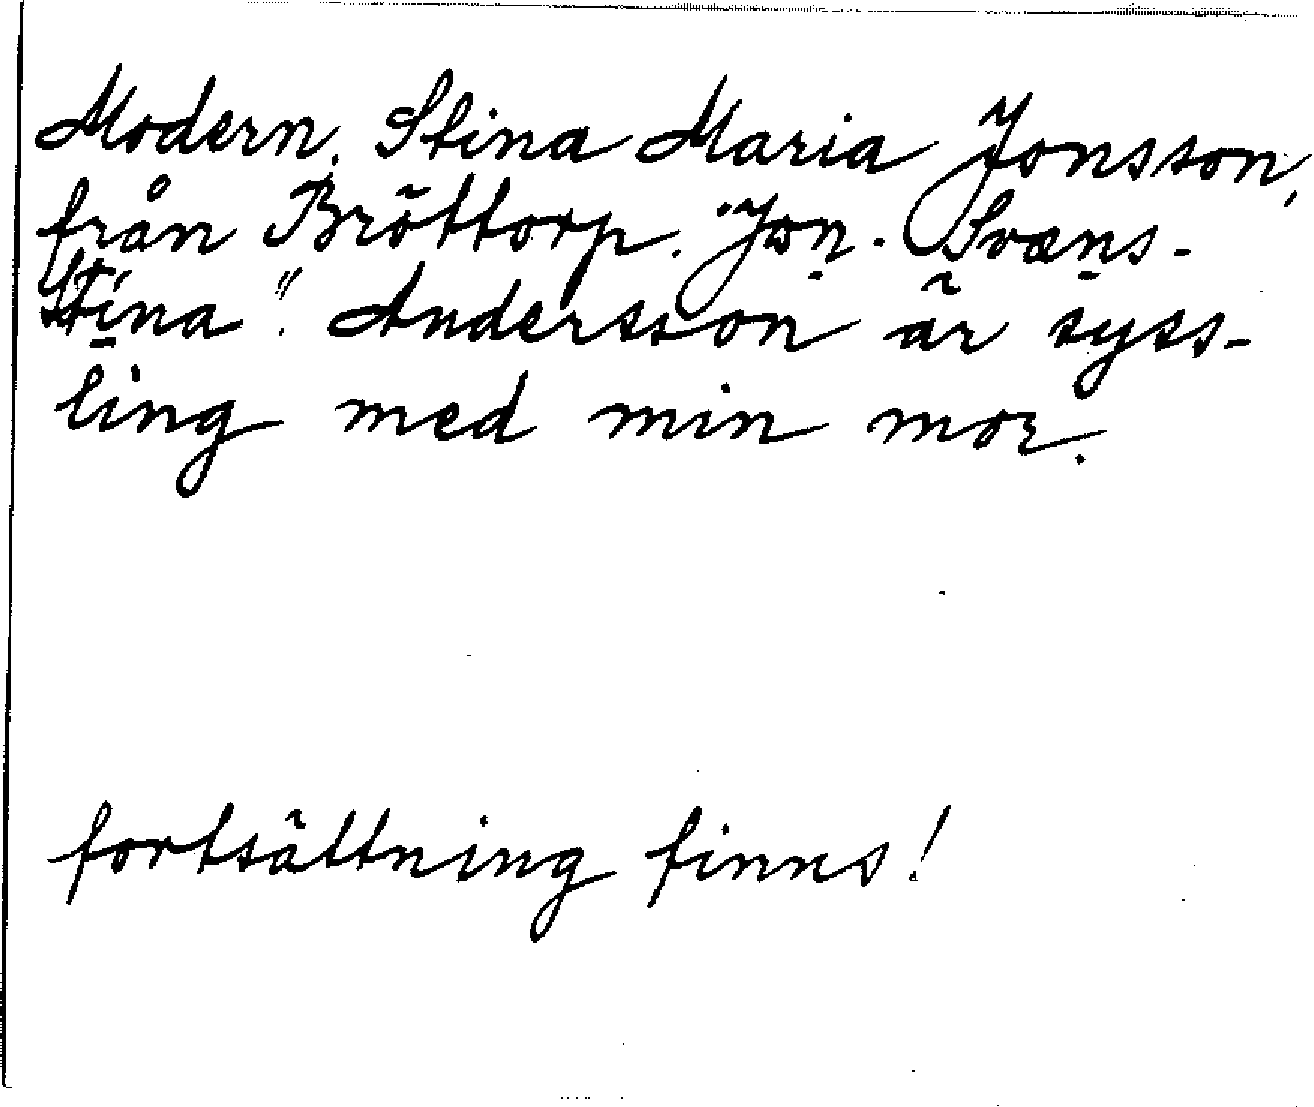 Modern, Stina Maria Jonsson,
från Bröttorp. "Jon-Svens-
Stina". Andersson är syss-
ling med min mor.
fortsättning finns!